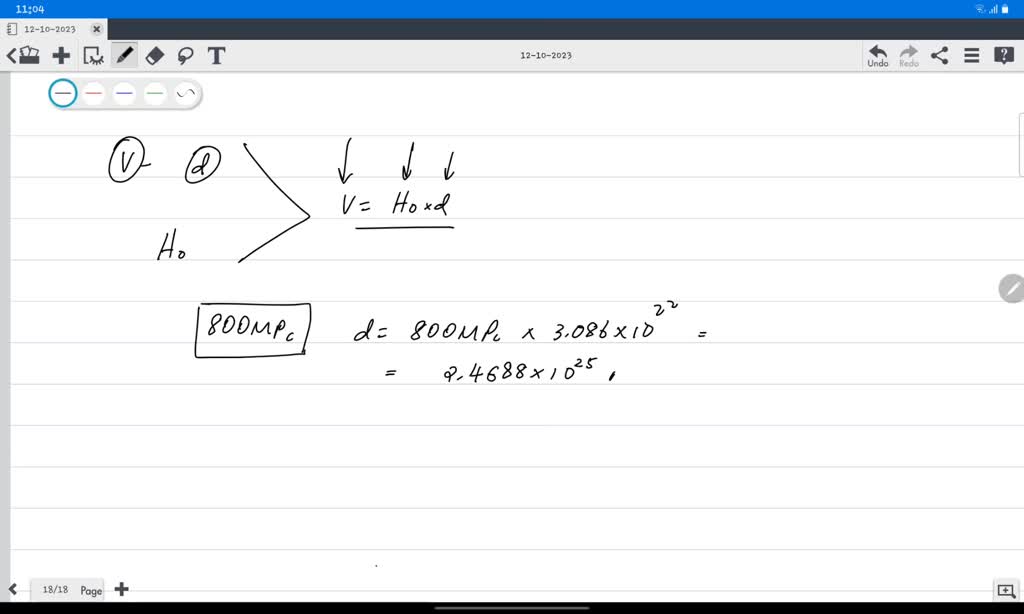 11:04
12-10-2023
T 12-10-2023 Undo Redo
V d
V = H₀ × d
H₀
800MPc d = 800MPc × 3.086×10²² =
= 2.4688×10²⁵
18/18 Page